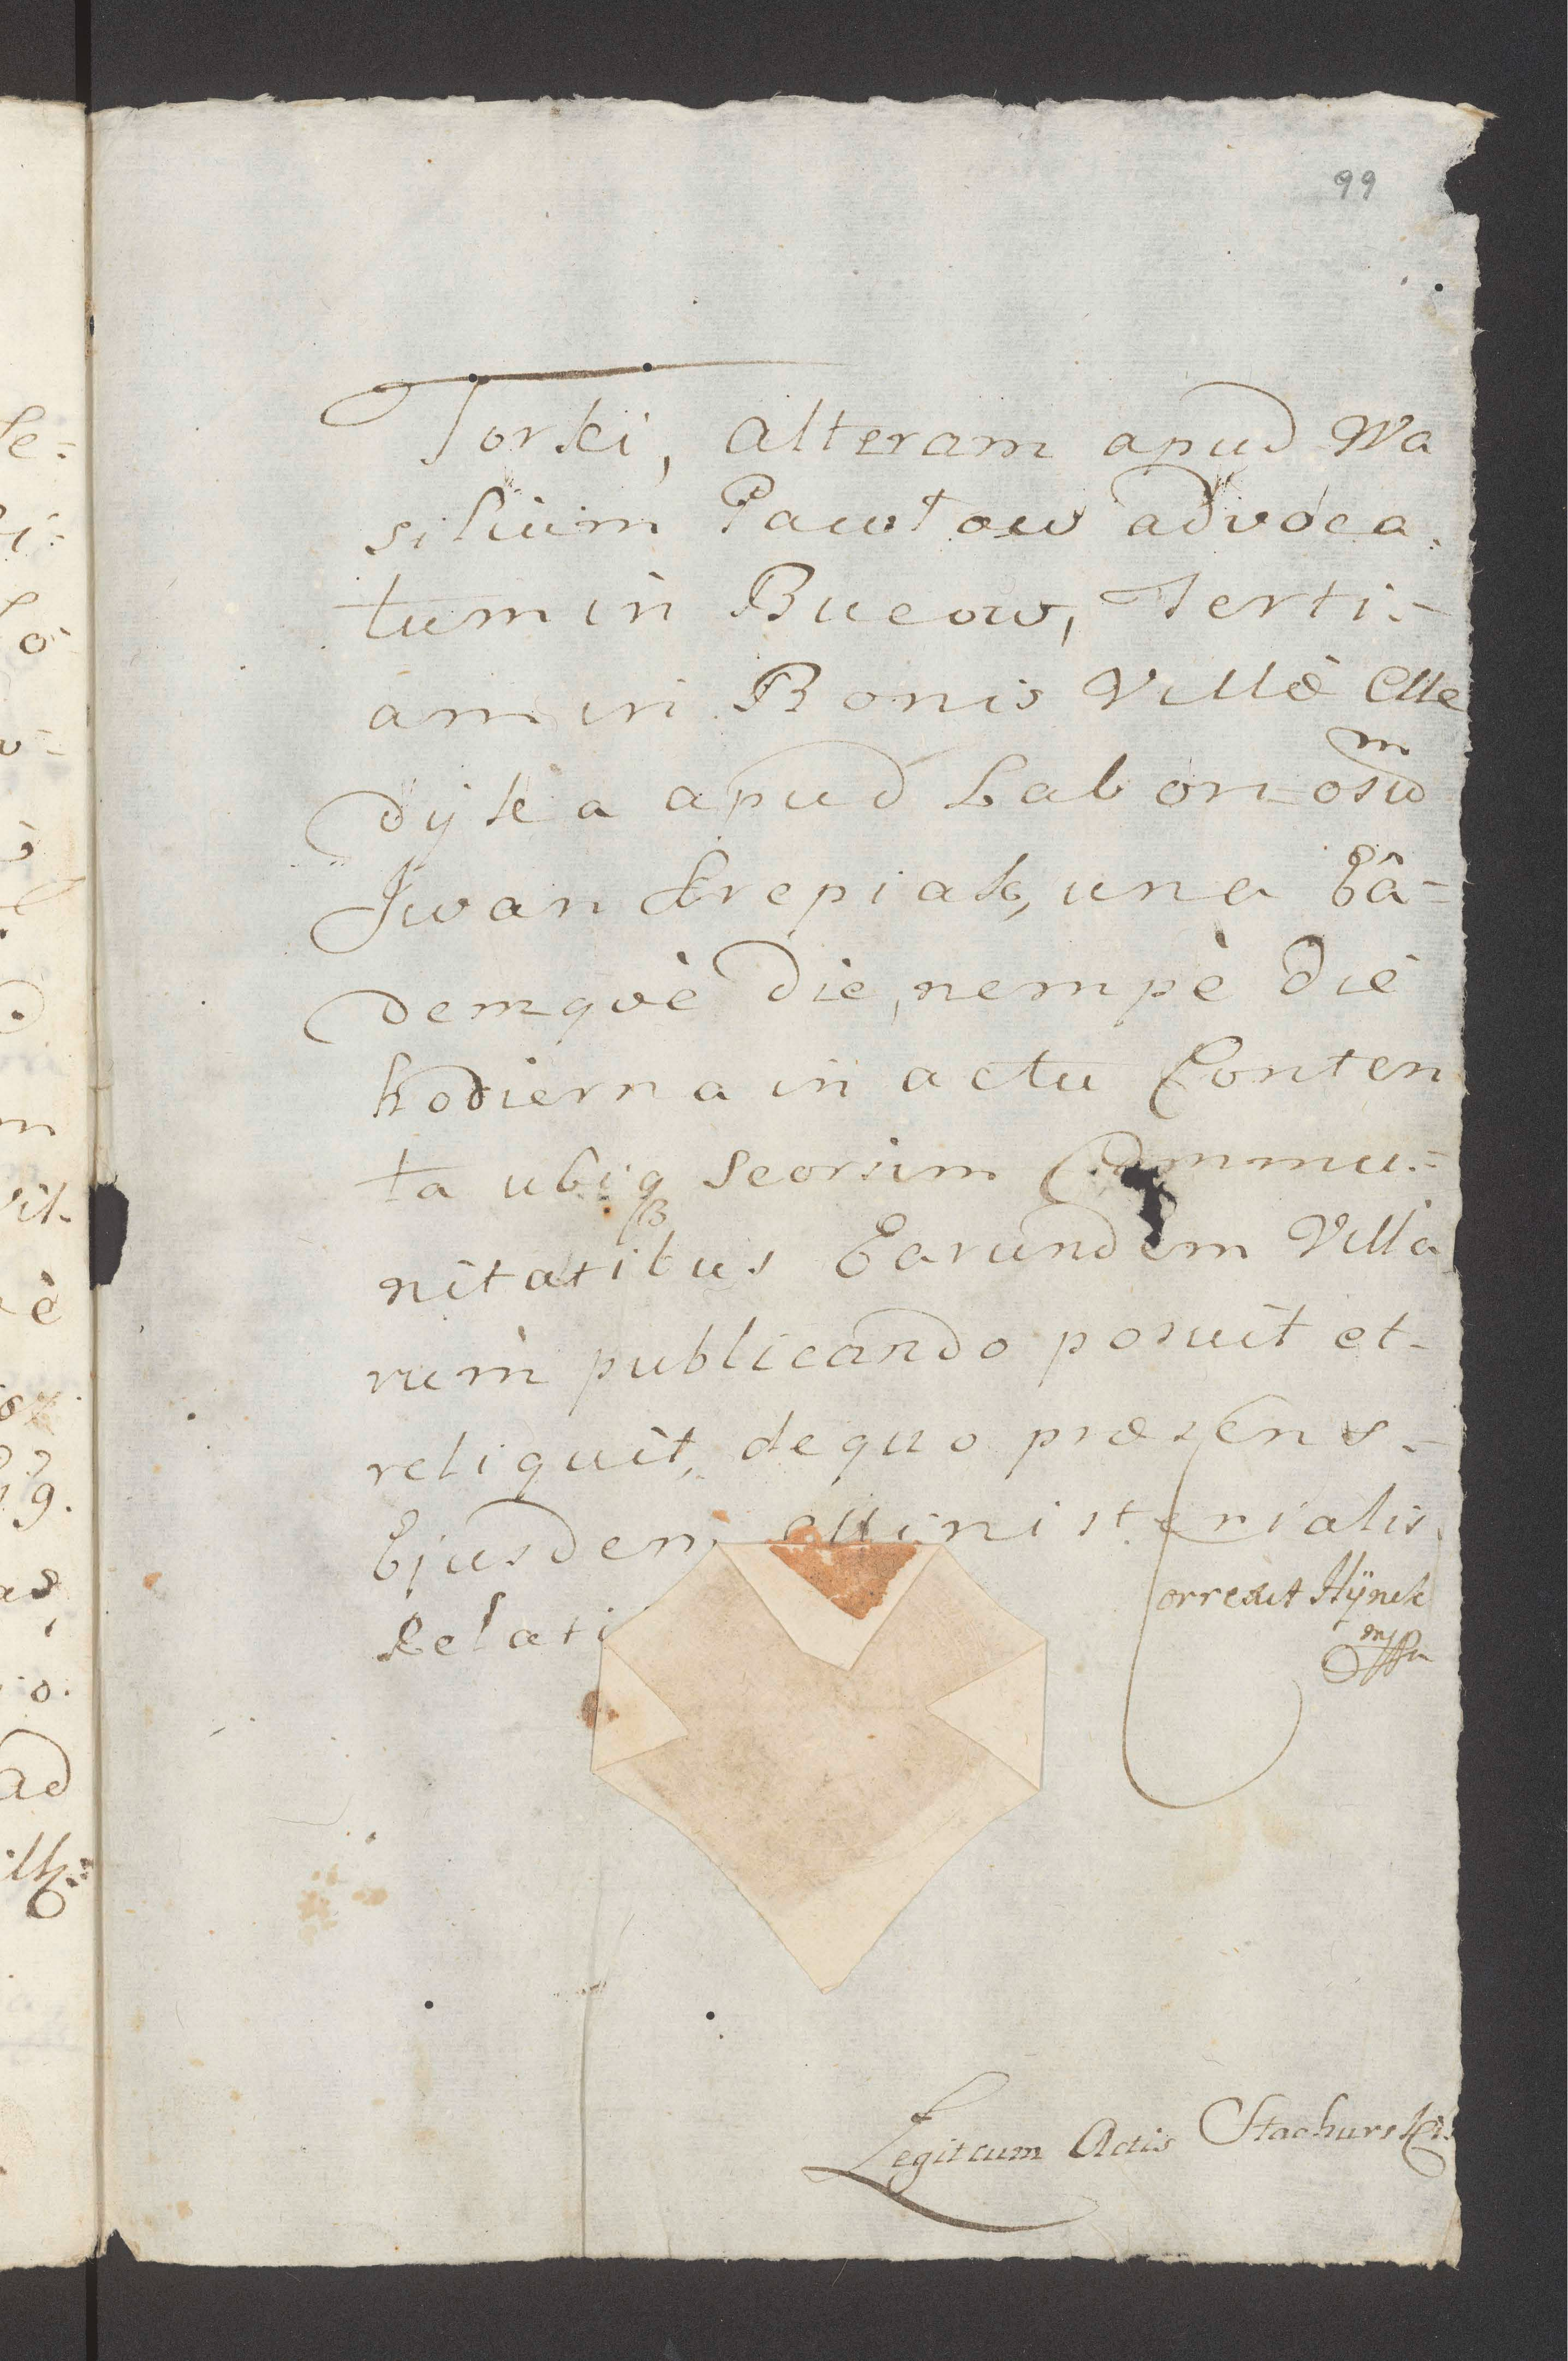 99
Torki, alteram apud Wa
silium Pawłow advoca-
tum in Bucow, Terti-
am in Bonis Villæ Me
dyka apud Laboriosum
Iwan Krepiak, una Eâ-
demqvè die, nempè die
hodierna in actu Conten
ta ubiq seorsim Commu-
nitatibus Earundem Villa
rum publicando posuit et
reliquit, de quo præsens
Ejusdem Ministerialis
Relati
Correxit Hÿnek
mppa
Legit cum Actis Stachurski